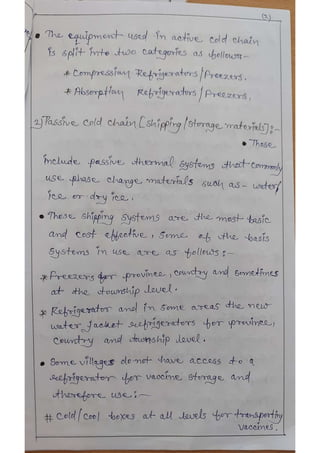 (3)
• The equipment used in active cold chain
is split into two categories as follows:-
* Compression Refrigerators/freezers.
* Absorption Refrigerators/freezers.
2) Passive cold chain [Shipping/Storage materials] :-
• These
include passive thermal systems that commonly
use phase change materials such as - water/
ice or dry ice.
• These shipping systems are the most basic
and cost effective, Some of the basis
systems in use are as follows :-
* Freezers for province, country and sometimes
at the township level.
* Refrigerator and in some areas the new
water jacket refrigerators for province,
country and township level.
• Some villages do not have access to a
refrigerator for vaccine storage and
therefore use :-
# Cold/cool boxes at all levels for transporting
vaccines.